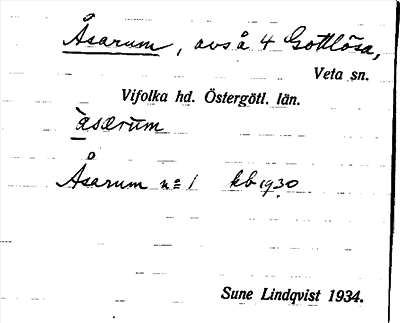 Åsarum, avs å 4 Gottlösa,
Veta sn.
Vifolka hd. Östergötl. län.
àsarum
Åsarum nº 1 kb 1930
Sune Lindqvist 1934.